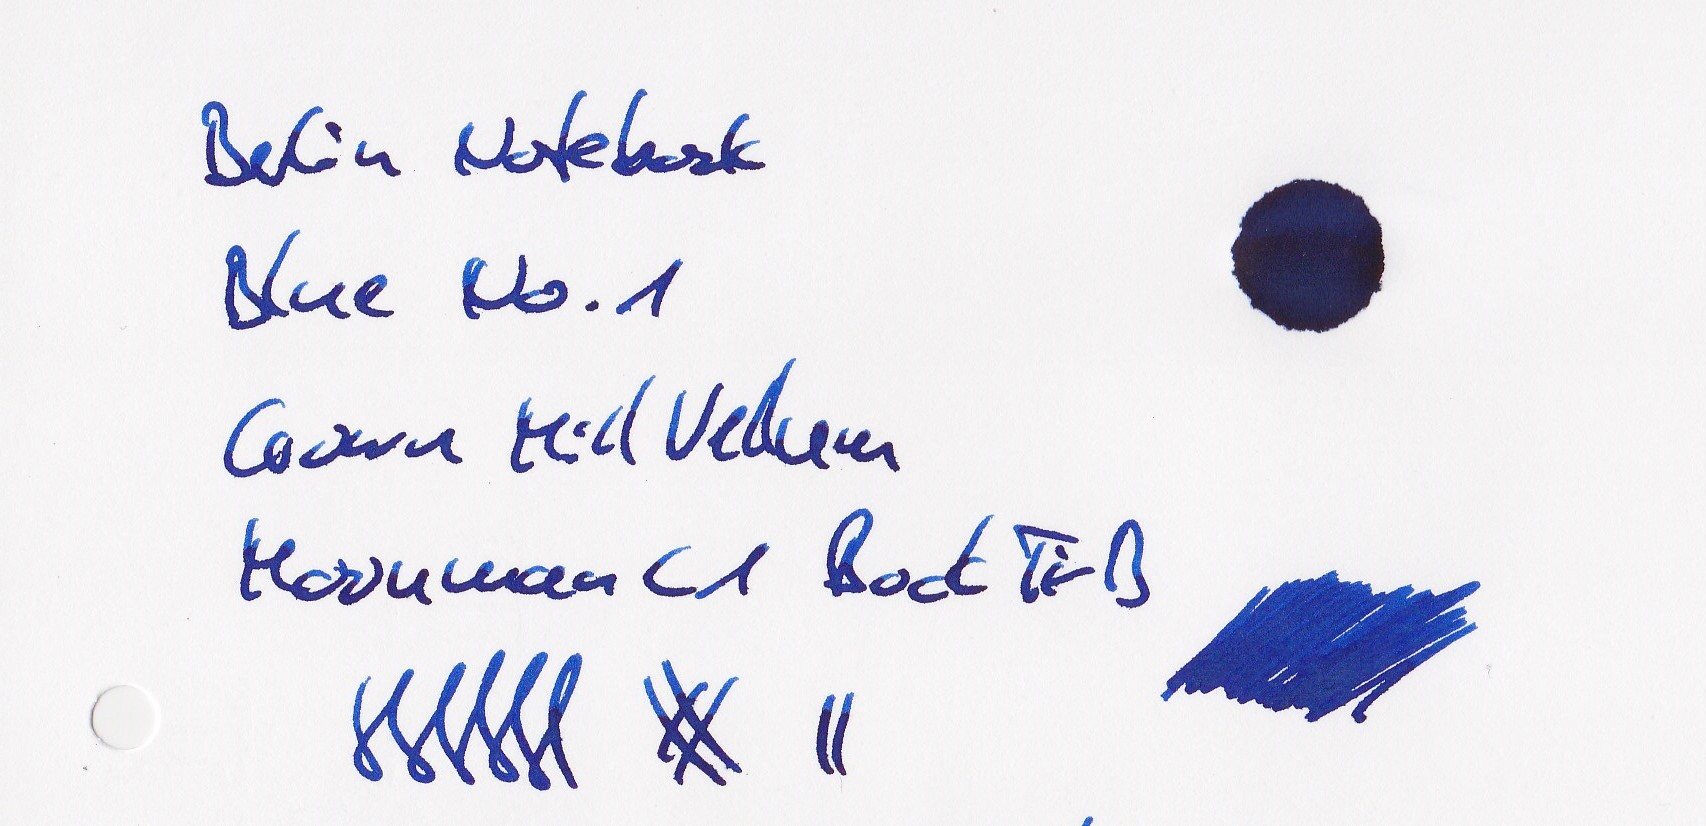 Berlin Notebook
Blue No. 1
Crown Mill Vellum
Moonman C1 Bock Ti-B